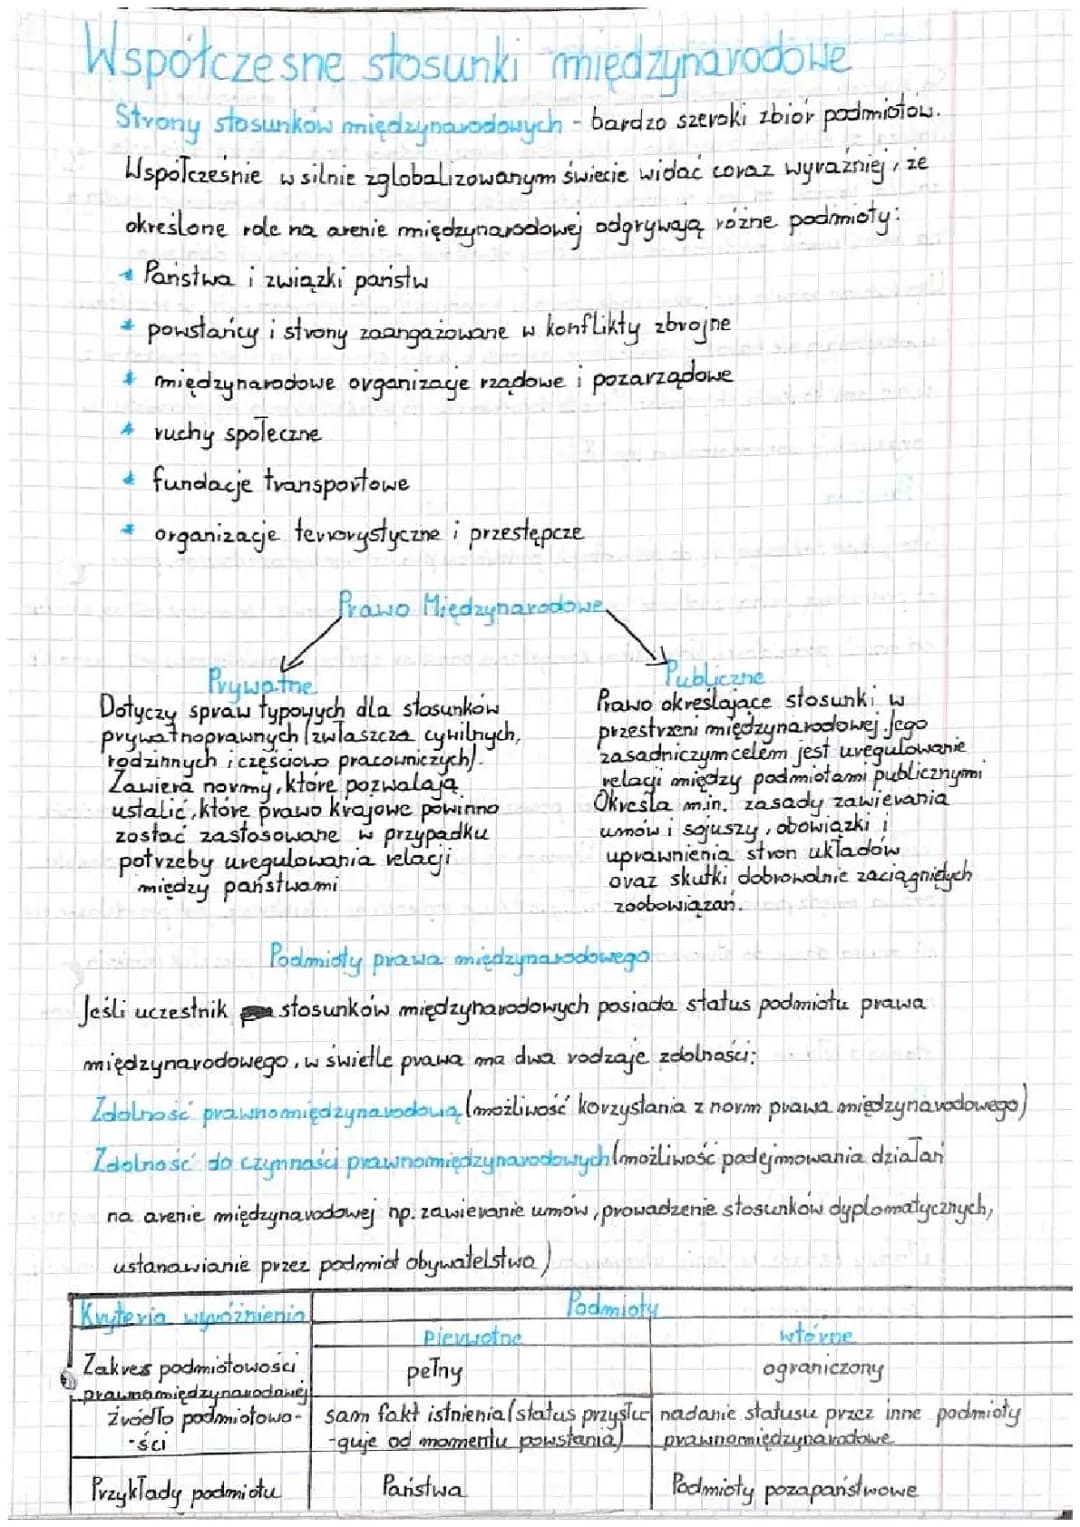 Współczesne stosunki międzynarodowe
Strony stosunków międzynarodowych - bardzo szeroki zbiór podmiotów.
Współcześnie w silnie zglobalizowanym świecie widać coraz wyraźniej, że
określone role na arenie międzynarodowej odgrywają różne podmioty:
* Państwa i związki państw
* powstańcy i strony zaangażowane w konflikty zbrojne
* międzynarodowe organizacje rządowe i pozarządowe
* ruchy społeczne
* fundacje transportowe
* organizacje terrorystyczne i przestępcze
Prawo Międzynarodowe
Prywatne
Dotyczy spraw typowych dla stosunków
prywatnoprawnych (zwłaszcza cywilnych,
rodzinnych i częściowo pracowniczych).
Zawiera normy, które pozwalają
ustalić, które prawo krajowe powinno
zostać zastosowane w przypadku
potrzeby uregulowania relacji
między państwami
Publiczne
Prawo określające stosunki w
przestrzeni międzynarodowej. Jego
zasadniczym celem jest uregulowanie
relacji między podmiotami publicznymi
Określa m.in. zasady zawierania
umów i sojuszy, obowiązki i
uprawnienia stron układów
oraz skutki dobrowolnie zaciągniętych
zoobowiązań.
Podmioty prawa międzynarodowego
Jeśli uczestnik stosunków międzynarodowych posiada status podmiotu prawa
międzynarodowego, w świetle prawa ma dwa rodzaje zdolności:
Zdolność prawnomiędzynarodową (możliwość korzystania z norm prawa międzynarodowego)
Zdolność do czynności prawnomiędzynarodowych (możliwość podejmowania działań
na arenie międzynarodowej np. zawieranie umów, prowadzenie stosunków dyplomatycznych,
ustanawianie przez podmiot obywatelstwa)
Kryteria wyróżnienia Podmioty
pierwotne wtórne
Zakres podmiotowości pełny ograniczony
prawnomiędzynarodowej
źródło podmiotowo- sam fakt istnienia (status przysłu nadanie statusu przez inne podmioty
-ści -guje od momentu powstania) prawnomiędzynarodowe
Przykłady podmiotu Państwa Podmioty pozapaństwowe